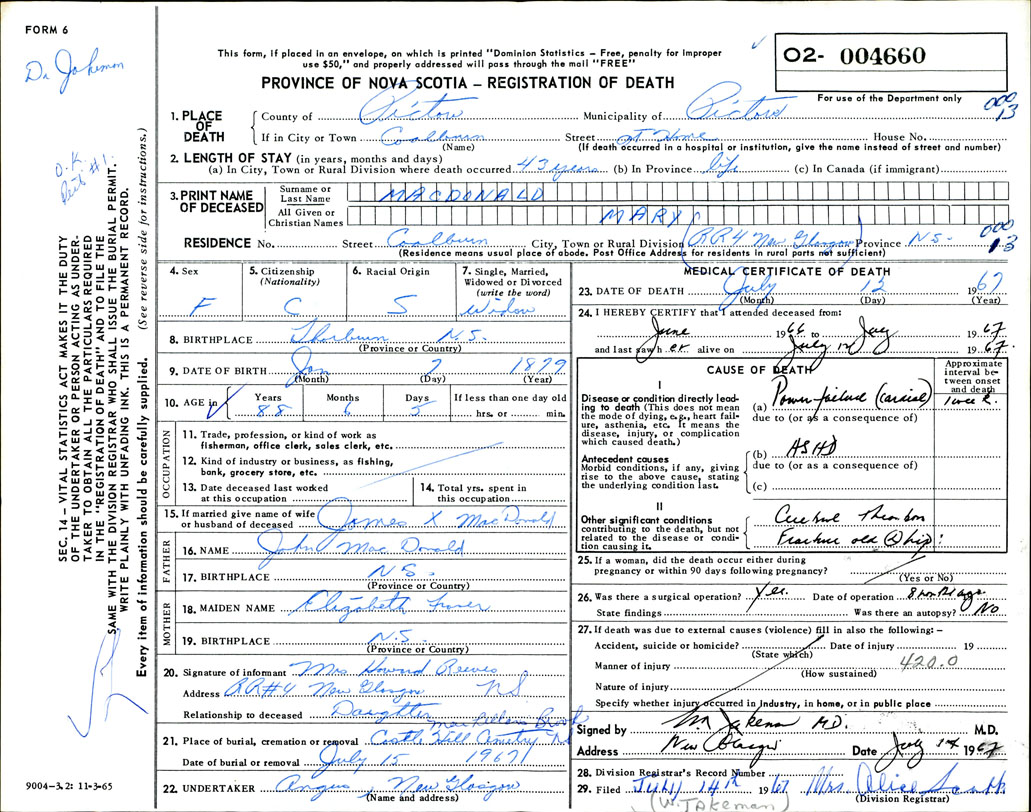 FORM 6
Dr Jakeman
O.K.
This form, if placed in an envelope, on which is printed "Dominion Statistics – Free, penalty for improper
use $50," and properly addressed will pass through the mail "FREE"
PROVINCE OF NOVA SCOTIA – REGISTRATION OF DEATH
O2- 004660
For use of the Department only
000
13
1. PLACE OF DEATH
County of Pictou Municipality of Pictou
If in City or Town Coalburn Street at Home House No.
(Name) (If death occurred in a hospital or institution, give the name instead of street and number)
2. LENGTH OF STAY (in years, months and days)
(a) In City, Town or Rural Division where death occurred 43 years (b) In Province life (c) In Canada (if immigrant)
3. PRINT NAME OF DECEASED
Surname or Last Name MACDONALD
All Given or Christian Names MARY
RESIDENCE No. Street Coalburn City, Town or Rural Division (RR4 New Glasgow) Province N.S.
000
13
(Residence means usual place of abode. Post Office Address for residents in rural parts not sufficient)
4. Sex F
5. Citizenship (Nationality) C
6. Racial Origin S
7. Single, Married, Widowed or Divorced (write the word) Widow
8. BIRTHPLACE Thorburn N.S.
(Province or Country)
9. DATE OF BIRTH Jan 7 1879
(Month) (Day) (Year)
10. AGE in Years 88 Months 6 Days 5 If less than one day old hrs. or min.
OCCUPATION
11. Trade, profession, or kind of work as
fisherman, office clerk, sales clerk, etc.
12. Kind of industry or business, as fishing,
bank, grocery store, etc.
13. Date deceased last worked at this occupation
14. Total yrs. spent in this occupation
15. If married give name of wife
or husband of deceased James X MacDonald
FATHER
16. NAME John MacDonald
17. BIRTHPLACE N.S.
(Province or Country)
MOTHER
18. MAIDEN NAME Elizabeth Fraser
19. BIRTHPLACE N.S.
(Province or Country)
20. Signature of informant Mrs Howard Reeves
Address RR#4 New Glasgow NS
Relationship to deceased Daughter
21. Place of burial, cremation or removal
Date of burial or removal July 15 1967
22. UNDERTAKER Angus New Glasgow
(Name and address)
MEDICAL CERTIFICATE OF DEATH
23. DATE OF DEATH July 12 1967
(Month) (Day) (Year)
24. I HEREBY CERTIFY that I attended deceased from:
June 1966 to July 1967
and last saw her alive on July 12 1967.
CAUSE OF DEATH
Approximate interval between onset and death
I
Disease or condition directly leading to death (This does not mean the mode of dying, e.g., heart failure, asthenia, etc. It means the disease, injury, or complication which caused death.)
(a) failure
due to (or as a consequence of)
Antecedent causes
Morbid conditions, if any, giving rise to the above cause, stating the underlying condition last.
(b) ASHD
due to (or as a consequence of)
(c)
II
Other significant conditions
contributing to the death, but not related to the disease or condition causing it.
Fracture old (R) hip
25. If a woman, did the death occur either during
pregnancy or within 90 days following pregnancy?
(Yes or No)
26. Was there a surgical operation? Yes. Date of operation
State findings Was there an autopsy? No
27. If death was due to external causes (violence) fill in also the following: –
Accident, suicide or homicide? Date of injury 19
(State which)
Manner of injury 420.0
(How sustained)
Nature of injury
Specify whether injury occurred in Industry, in home, or in public place
Signed by M.D. M.D.
Address New Glasgow Date July 1967
28. Division Registrar's Record Number
29. Filed July 14th 1967 Mrs. Alice
(Division Registrar)
(W. JAkeman)
SEC. 14 – VITAL STATISTICS ACT MAKES IT THE DUTY
OF THE UNDERTAKER OR PERSON ACTING AS UNDER-
TAKER TO OBTAIN ALL THE PARTICULARS REQUIRED
IN THE "REGISTRATION OF DEATH" AND TO FILE THE
SAME WITH THE DIVISION REGISTRAR WHO SHALL ISSUE THE BURIAL PERMIT.
WRITE PLAINLY WITH UNFADING INK. THIS IS A PERMANENT RECORD.
Every item of information should be carefully supplied. (See reverse side for instructions.)
9004–3.2: 11-3-65